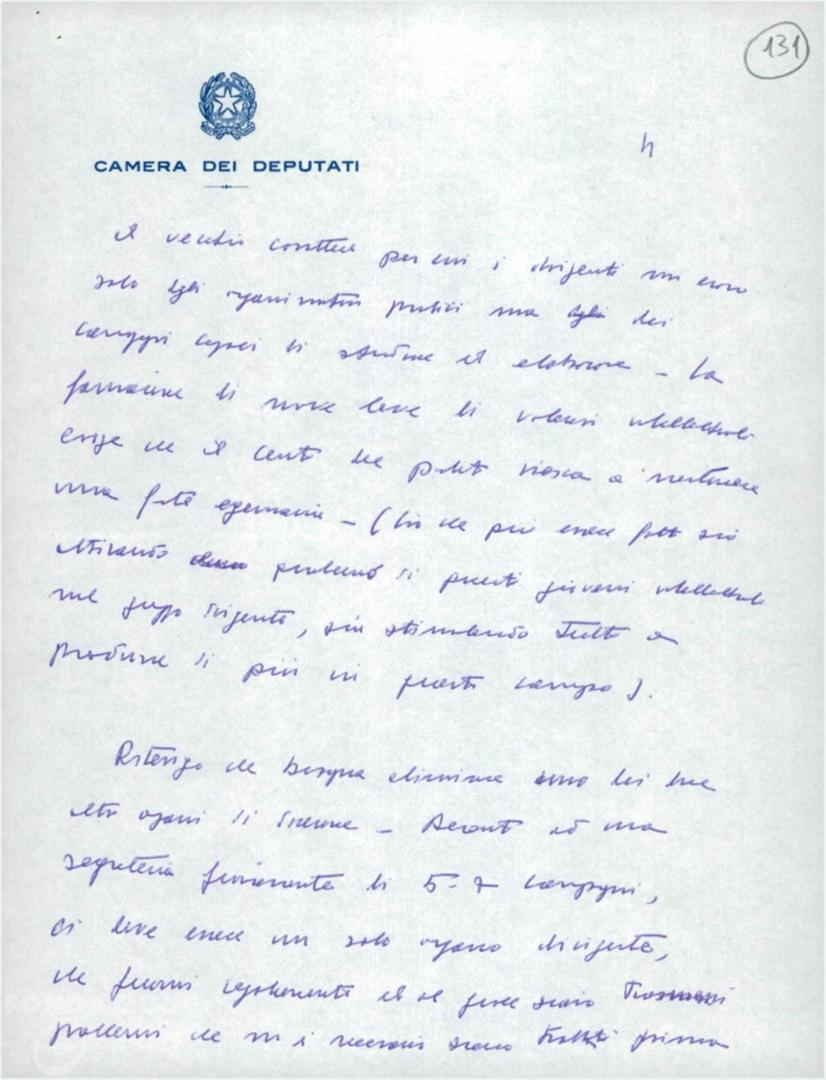 131
CAMERA DEI DEPUTATI
4
il vecchio carattere per cui i dirigenti non erano
solo degli organizzatori pratici ma degli dei
compagni capaci di studiare ed elaborare - La
formazione di nuove leve di valorosi intellettuali
esige che il centro del partito riesca a
una forte egemonia - (Ciò che può essere fatto sia
attirando alcuni di questi giovani intellettuali
nel gruppo dirigente, sia stimolando tutti a
produrre di più in questo campo).
Ritengo che bisogna eliminare uno dei due
altri organi di direzione - Accanto ad una
segreteria funzionante di 5-7 compagni,
ci deve essere un solo organo dirigente,
che funzioni regolarmente ed al quale siano
problemi che vi è necessario siano trattati prima